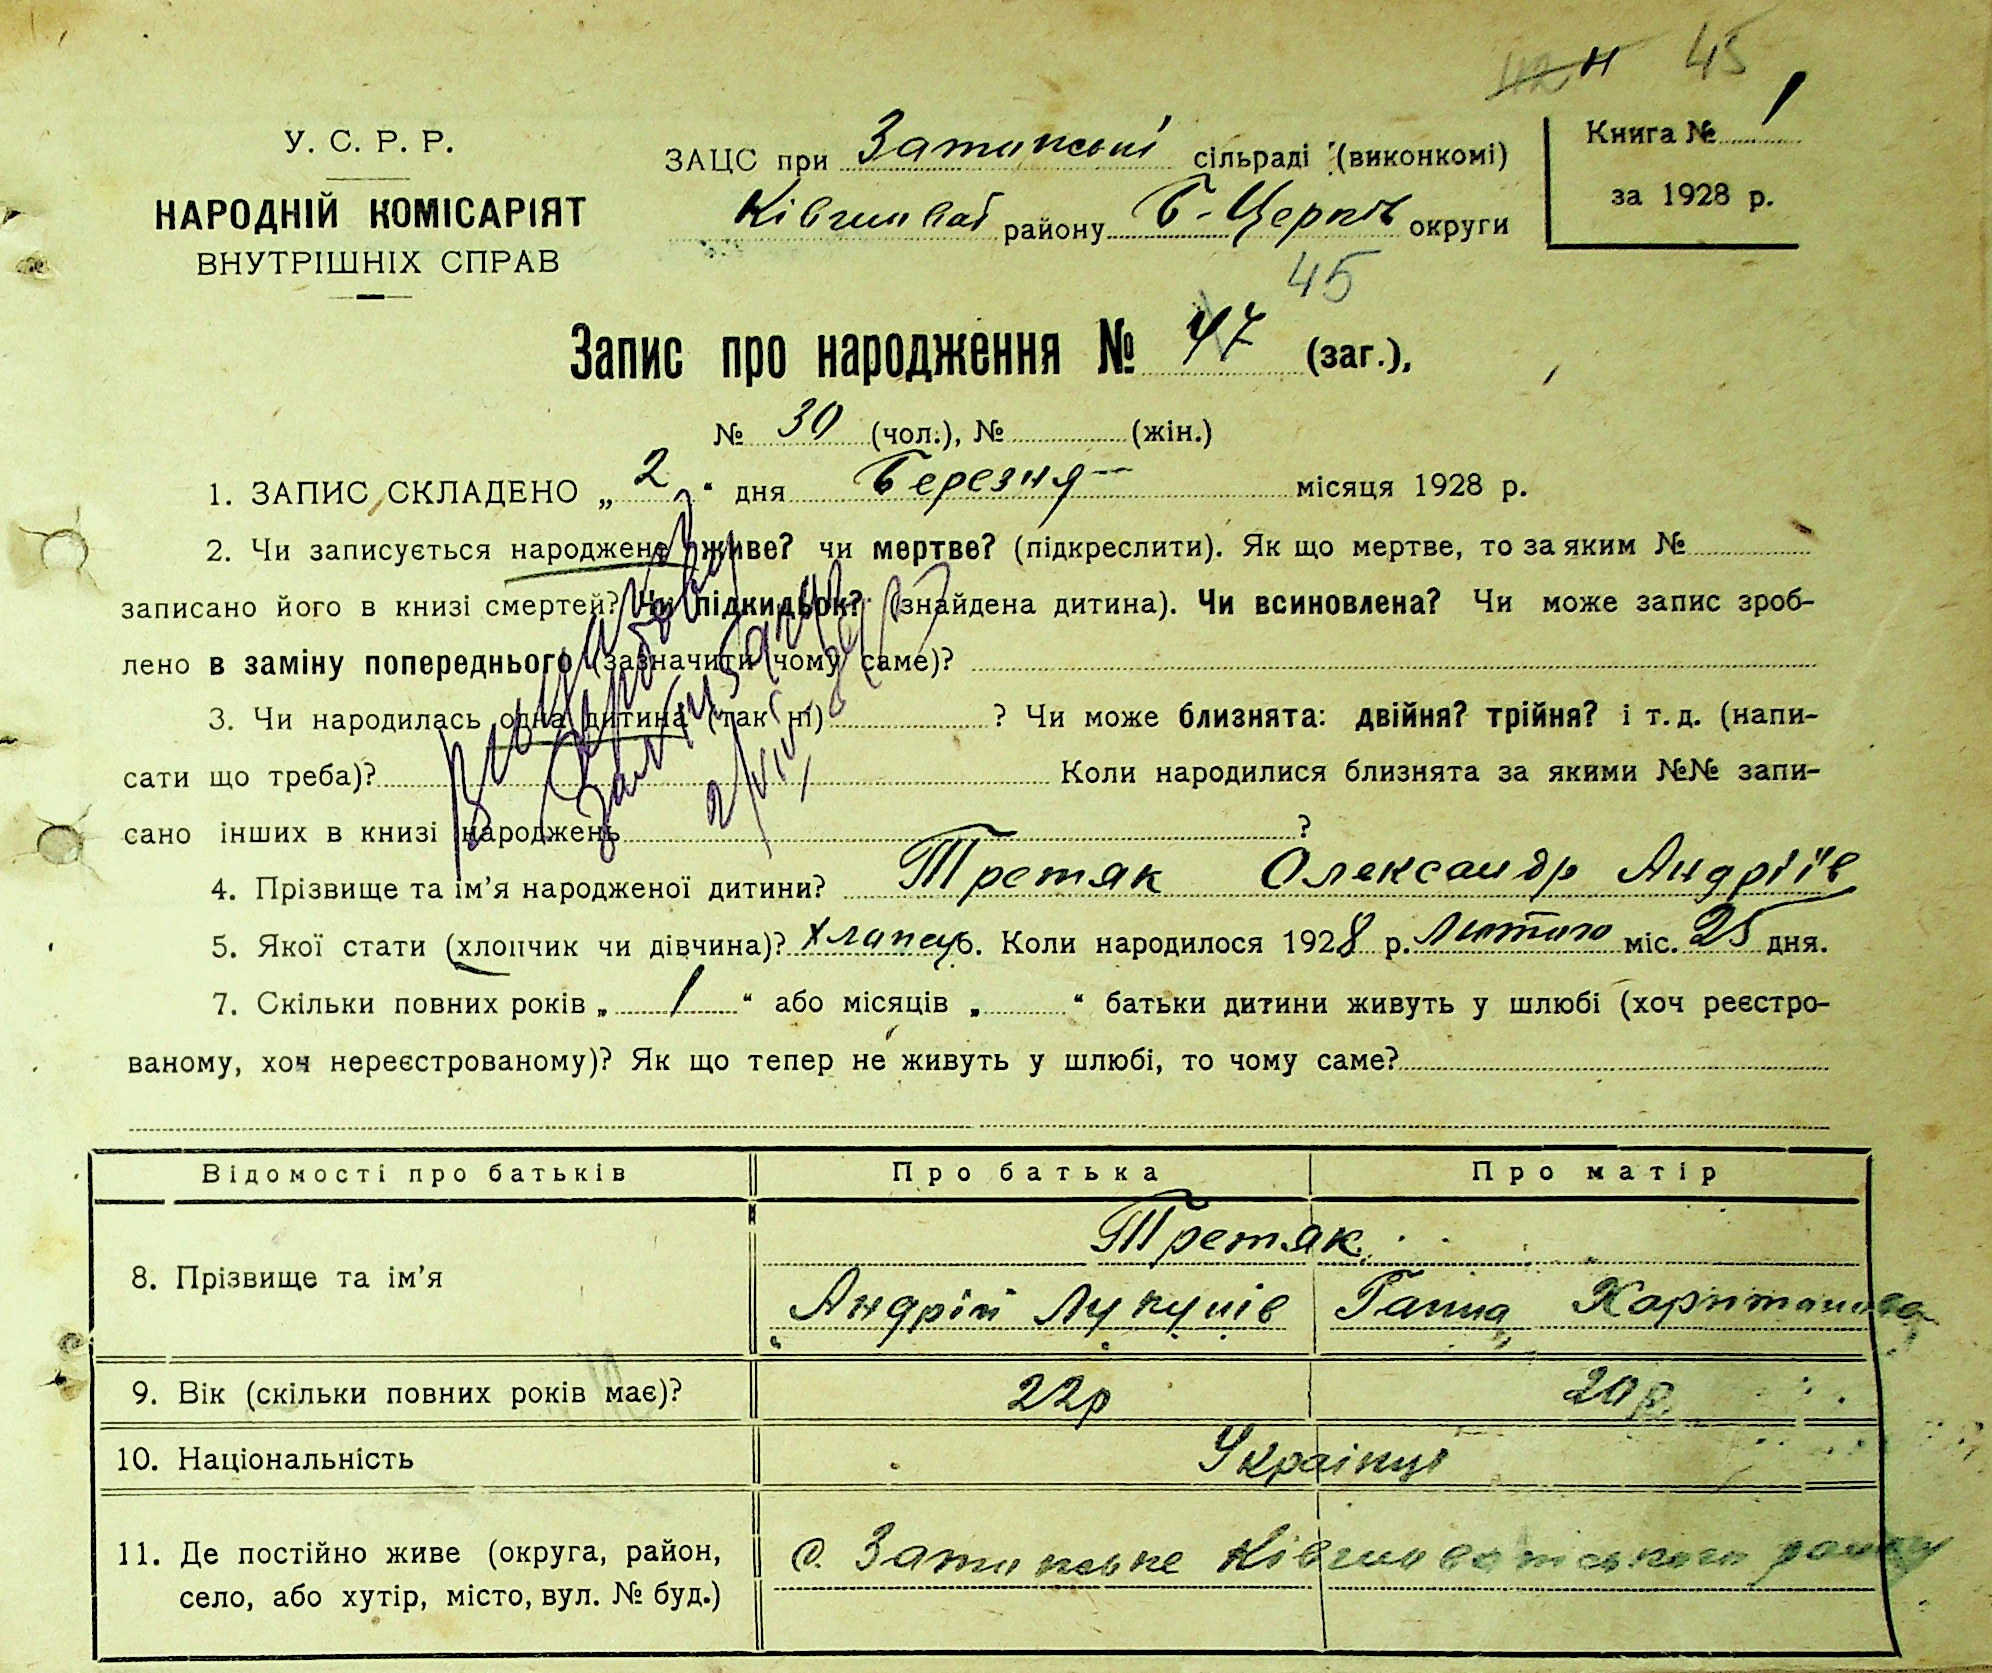 45
У. С. Р. Р.
НАРОДНІЙ КОМІСАРІЯТ
ВНУТРІШНІХ СПРАВ
ЗАЦС при Затинські сільраді (виконкомі)
Ківшоват району Б-Церків округи
Книга № 1
за 1928 р.
45
Запис про народження № 47 (заг.),
№ 30 (чол.), № (жін.)
1. ЗАПИС СКЛАДЕНО „ 2 “ дня Березня місяця 1928 р.
2. Чи записується народжене живе? чи мертве? (підкреслити). Як що мертве, то за яким №
записано його в книзі смертей? Чи підкидьок? (знайдена дитина). Чи всиновлена? Чи може запис зроб-
лено в заміну попереднього (зазначити чому саме)?
3. Чи народилась одна дитина (так ні) ? Чи може близнята: двійня? трійня? і т. д. (напи-
сати що треба)? Коли народилися близнята за якими №№ запи-
сано інших в книзі народжень ?
4. Прізвище та ім’я народженої дитини? Третяк Олександр Андріїв
5. Якої стати (хлопчик чи дівчина)? Хлапець. Коли народилося 1928 р. Лютого міс. 25 дня.
7. Скільки повних років „ 1 “ або місяців „ “ батьки дитини живуть у шлюбі (хоч реєстро-
ваному, хоч нереєстрованому)? Як що тепер не живуть у шлюбі, то чому саме?
Відомості про батьків Про батька Про матір
8. Прізвище та ім’я
Третяк
Андрій Лукунів Ганна Харитонова
9. Вік (скільки повних років має)? 22р 20р
10. Національність Українці
11. Де постійно живе (округа, район,
село, або хутір, місто, вул. № буд.)
с. Затинське Ківшоватського району